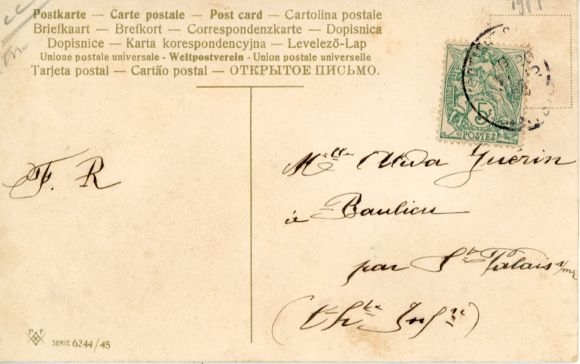 Postkarte — Carte postale — Post card — Cartolina postale
Briefkaart — Brefkort — Correspondenzkarte — Dopisnica
Dopisnice — Karta korespondencyjna — Levelező-Lap
Unione postale universale - Weltpostverein - Union postale universelle
Tarjeta postal — Cartão postal — ОТКРЫТОЕ ПИСЬМО.
5
POSTES
F. R
Melle Guérin
à Baulieu
par St Palais s/mer
(Chte Infre)
SERIE 6244/45